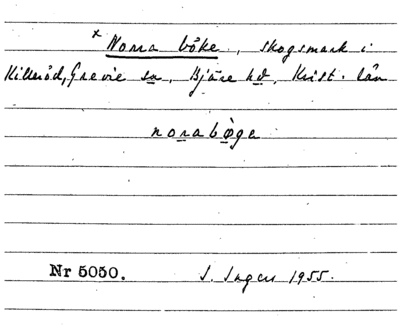 × Norra böke, skogsmark i
Killeröd, Grevie sn, Bjäre hd, Krist. län
norabøga
Nr 5050. S. Ingers 1955.